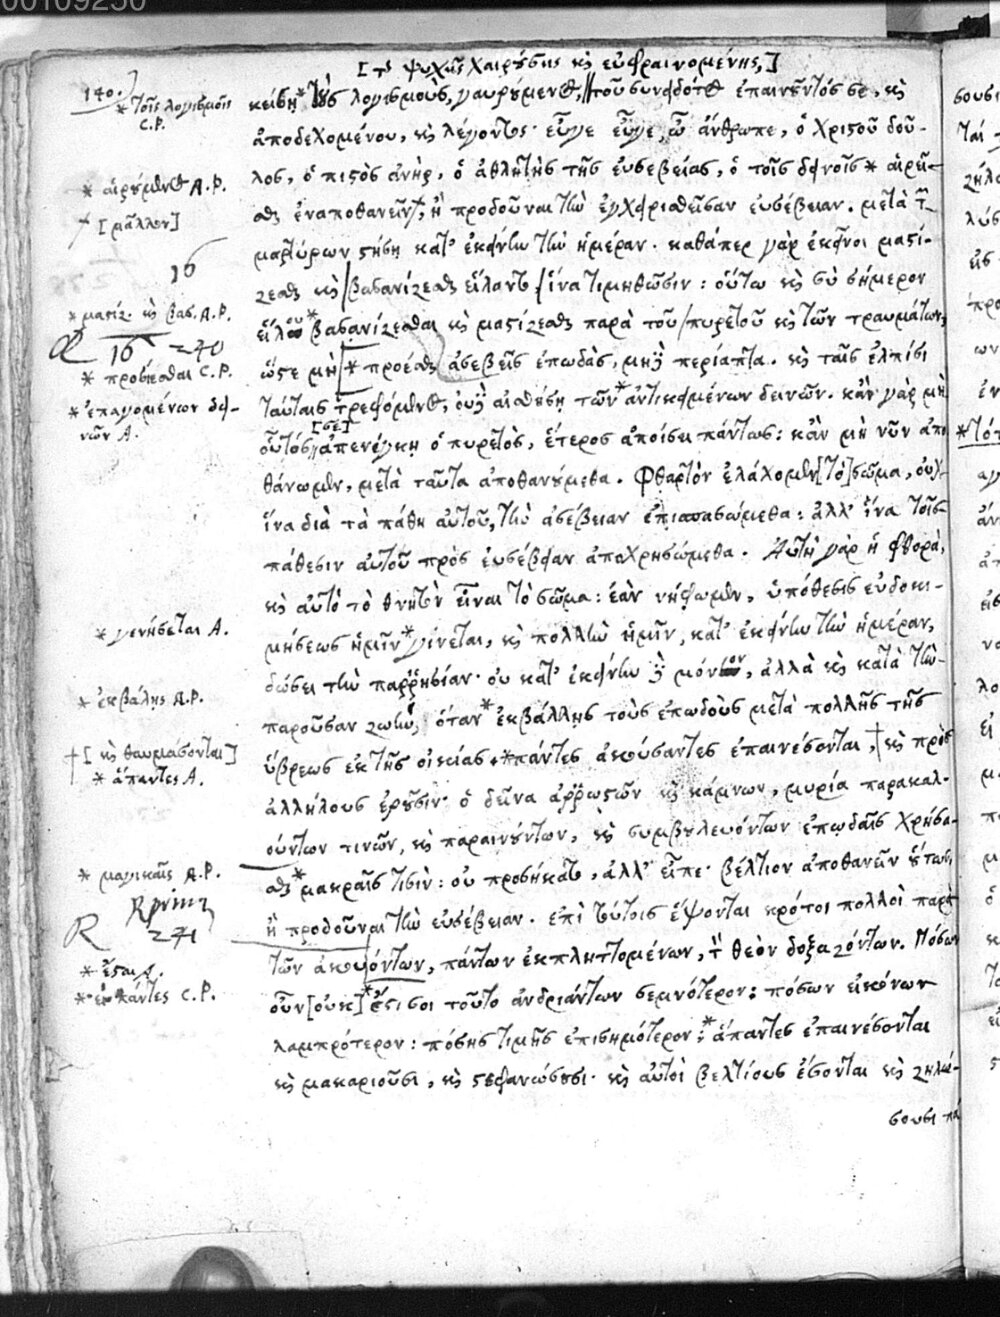 00109250
[τῆς ψυχῆς χαιρούσης καὶ εὐφραινομένης,]
140.
* τοῖς λογισμοῖς C.P.
κείσῃ * τοὺς λογισμους, γαυρούμενος, τοῦ συνειδότος ἐπαινοῦντός σε, καὶ
ἀποδεχομένου, καὶ λέγοντος· εὖγε εὖγε, ὦ ἄνθρωπε, ὁ Χριστοῦ δοῦ-
λος, ὁ πιστὸς ἀνὴρ, ὁ ἀθλητὴς τῆς εὐσεβείας, ὁ τοῖς δεινοῖς * αἱρεῖ-
* αἱρούμενος A.P.
σθαι ἐναποθανεῖν, ἢ προδοῦναι τὴν ἐγχειρισθεῖσαν εὐσέβειαν. μετὰ τῶν
[μᾶλλον]
μαρτύρων στήσῃ κατ' ἐκείνην τὴν ἡμέραν. καθάπερ γὰρ ἐκεῖνοι μαστί-
16
ζεσθαι καὶ βασανίζεσθαι εἵλαντο ἵνα τιμηθῶσιν: οὕτω καὶ σὺ σήμερον
* μαστίζ. καὶ βασ. A.P.
εἵλου * βασανίζεσθαι καὶ μαστίζεσθαι παρὰ τοῦ πυρετοῦ καὶ τῶν τραυμάτων,
16 270
ὥστε μὴ * προέσθαι ἀσεβεῖς ἐπωδὰς, μηδὲ περίαπτα. καὶ ταῖς ἐλπίσι
* προσίεσθαι C.P.
ταύταις τρεφόμενος, οὐδὲ αἰσθήσῃ τῶν * ἀντικειμένων δεινῶν. κἂν γὰρ μὴ
* ἐπαγομένων δει-
νῶν A.
οὗτός [σε] ἀπενέγκῃ ὁ πυρετὸς, ἕτερος ἀποίσει πάντως: κἂν μὴ νῦν ἀπο
θάνωμεν, μετὰ ταῦτα ἀποθανούμεθα. Φθαρτὸν ἐλάχομεν [τὸ] σῶμα, οὐχ
ἵνα διὰ τὰ πάθη αὐτοῦ, τὴν ἀσέβειαν ἐπισπασώμεθα: ἀλλ' ἵνα τοῖς
πάθεσιν αὐτοῦ πρὸς εὐσέβειαν ἀποχρησώμεθα. Αὕτη γὰρ ἡ φθορὰ,
καὶ αὐτὸ τὸ θνητὸν εἶναι τὸ σῶμα: ἐὰν νήφωμεν, ὑπόθεσις εὐδοκι-
μήσεως ἡμῖν * γίνεται, καὶ πολλὴν ἡμῖν, κατ' ἐκείνην τὴν ἡμέραν,
* γενήσεται A.
δώσει τὴν παρρησίαν· οὐ κατ' ἐκείνην δὲ μόνον, ἀλλὰ καὶ κατὰ τὴν
παροῦσαν ζωήν, ὅταν * ἐκβάλλῃς τοὺς ἐπωδοὺς μετὰ πολλῆς τῆς
* ἐκβάλῃς A.P.
ὕβρεως ἐκ τῆς οἰκίας. * πάντες ἀκούσαντες ἐπαινέσονται, † καὶ πρὸς
† [καὶ θαυμάσονται]
* ἅπαντες A.
ἀλλήλους ἐροῦσιν· ὁ δεῖνα ἀρρωστῶν καὶ κάμνων, μυρία παρακαλ-
ούντων τινῶν, καὶ παραινούντων, καὶ συμβουλευόντων ἐπωδαῖς χρήσα-
σθαι * μακραῖς τισὶν: οὐ προσήκατο, ἀλλ' εἶπε· βέλτιον ἀποθανεῖν οὕτως,
* μαγικαῖς A.P.
ἢ προδοῦναι τὴν εὐσέβειαν. ἐπὶ τούτοις ἕψονται κρότοι πολλοὶ παρὰ
R
271
τῶν ἀκουόντων, πάντων ἐκπληττομένων, τὸν θεὸν δοξαζόντων. Πόσων
* ἔσται A.
οὖν [οὐκ] * ἔστι σοι τοῦτο ἀνδριάντων σεμνότερον; πόσων εἰκόνων
λαμπρότερον: πόσης τιμῆς ἐπισημότερον; * ἅπαντες ἐπαινέσονται
καὶ μακαριοῦσι, καὶ στεφανώσουσι. καὶ αὐτοὶ βελτίους ἔσονται καὶ ζηλώ-
σουσι